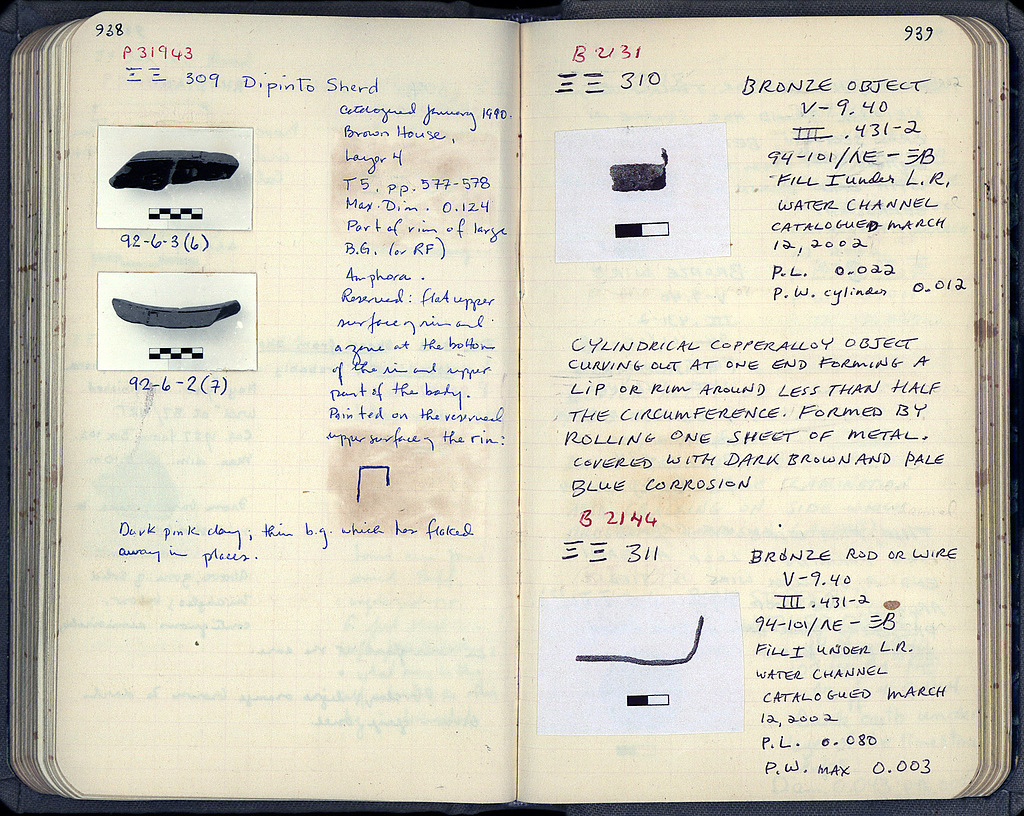 938
P 31943
ΞΞ 309 Dipinto Sherd
Catalogued January 1990.
Brown House,
Layer 4
T 5, pp. 577-578
Max. Dim. 0.124
Part of rim of large
B.G. (or RF)
Amphora.
Reserved: flat upper
surface of rim and
a zone at the bottom
of the rim and upper
part of the body.
Painted on the reserved
upper surface of the rim:
92-6-3 (6)
92-6-2 (7)
Dark pink clay; thin b.g. which has flaked
away in places.
939
B 2131
ΞΞ 310 BRONZE OBJECT
V-9.40
III .431-2
94-101/ΛE - ΞB
FILL I under L.R,
WATER CHANNEL
CATALOGUED MARCH
12, 2002
P.L. 0.022
P.W. cylinder 0.012
CYLINDRICAL COPPER ALLOY OBJECT
CURVING OUT AT ONE END FORMING A
LIP OR RIM AROUND LESS THAN HALF
THE CIRCUMFERENCE. FORMED BY
ROLLING ONE SHEET OF METAL.
COVERED WITH DARK BROWN AND PALE
BLUE CORROSION
B 2144
ΞΞ 311 BRONZE ROD OR WIRE
V-9.40
III .431-2
94-101/ΛE - ΞB
FILL I UNDER L.R.
WATER CHANNEL
CATALOGUED MARCH
12, 2002
P.L. 0.080
P.W. MAX 0.003